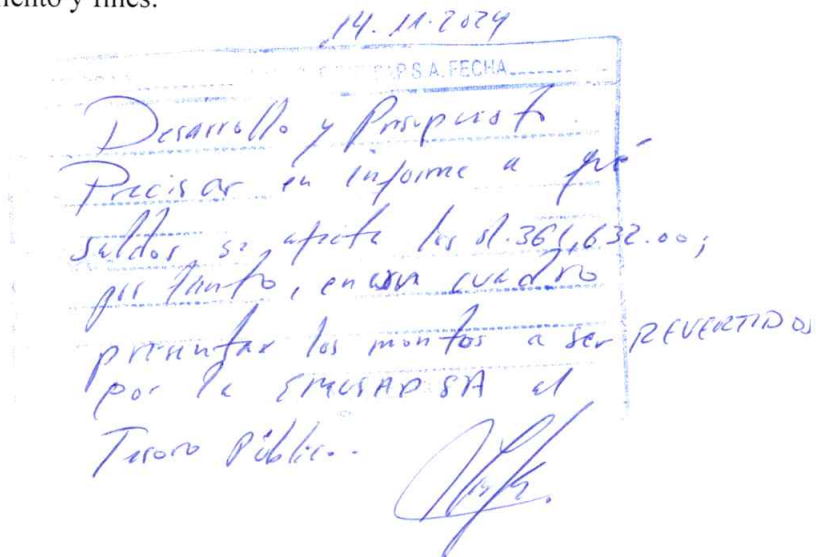 ento y fines.
14.11.2024
P S.A. FECHA
Desarrollo y Presupuesto
Precisar en informe a qué
saldos se afecta los s/. 361,632.00;
por tanto, en un cuadro
presentar los montos a ser REVERTIDOS
por la EMUSAP SA al
Tesoro Público.